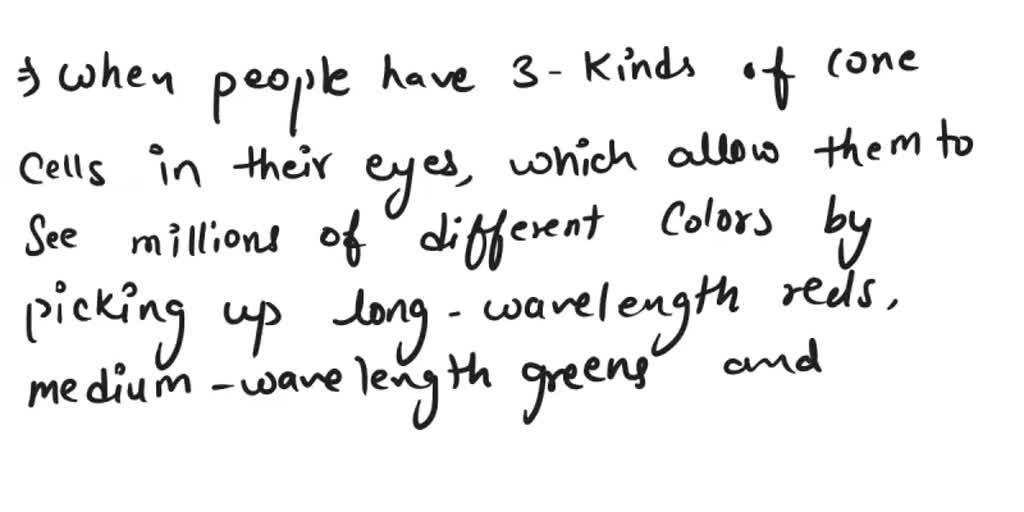 ⇒ When people have 3 - Kinds of cone
Cells in their eyes, which allow them to
See millions of different Colors by
picking up long - wavelength reds,
medium - wavelength greens and